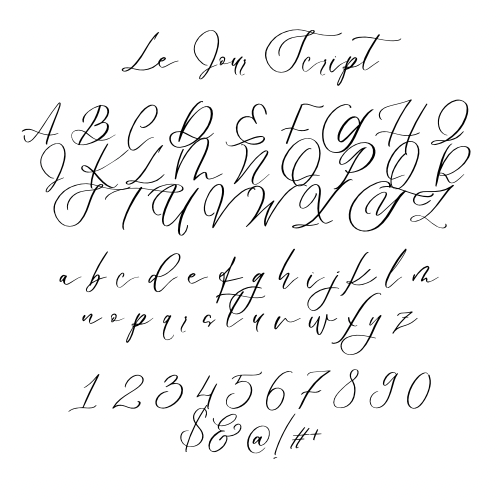 Le Jour Script
A B C D E F G H I
J K L M N O P Q R
S T U V W X Y Z
a b c d e f g h i j k l m
n o p q r s t u v w x y z
1 2 3 4 5 6 7 8 9 0
$ & @ ! # +